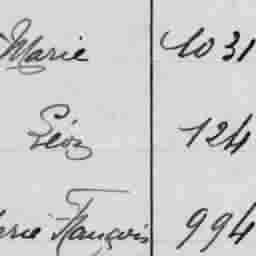 Marie 1031
Léon 124
arie François 994